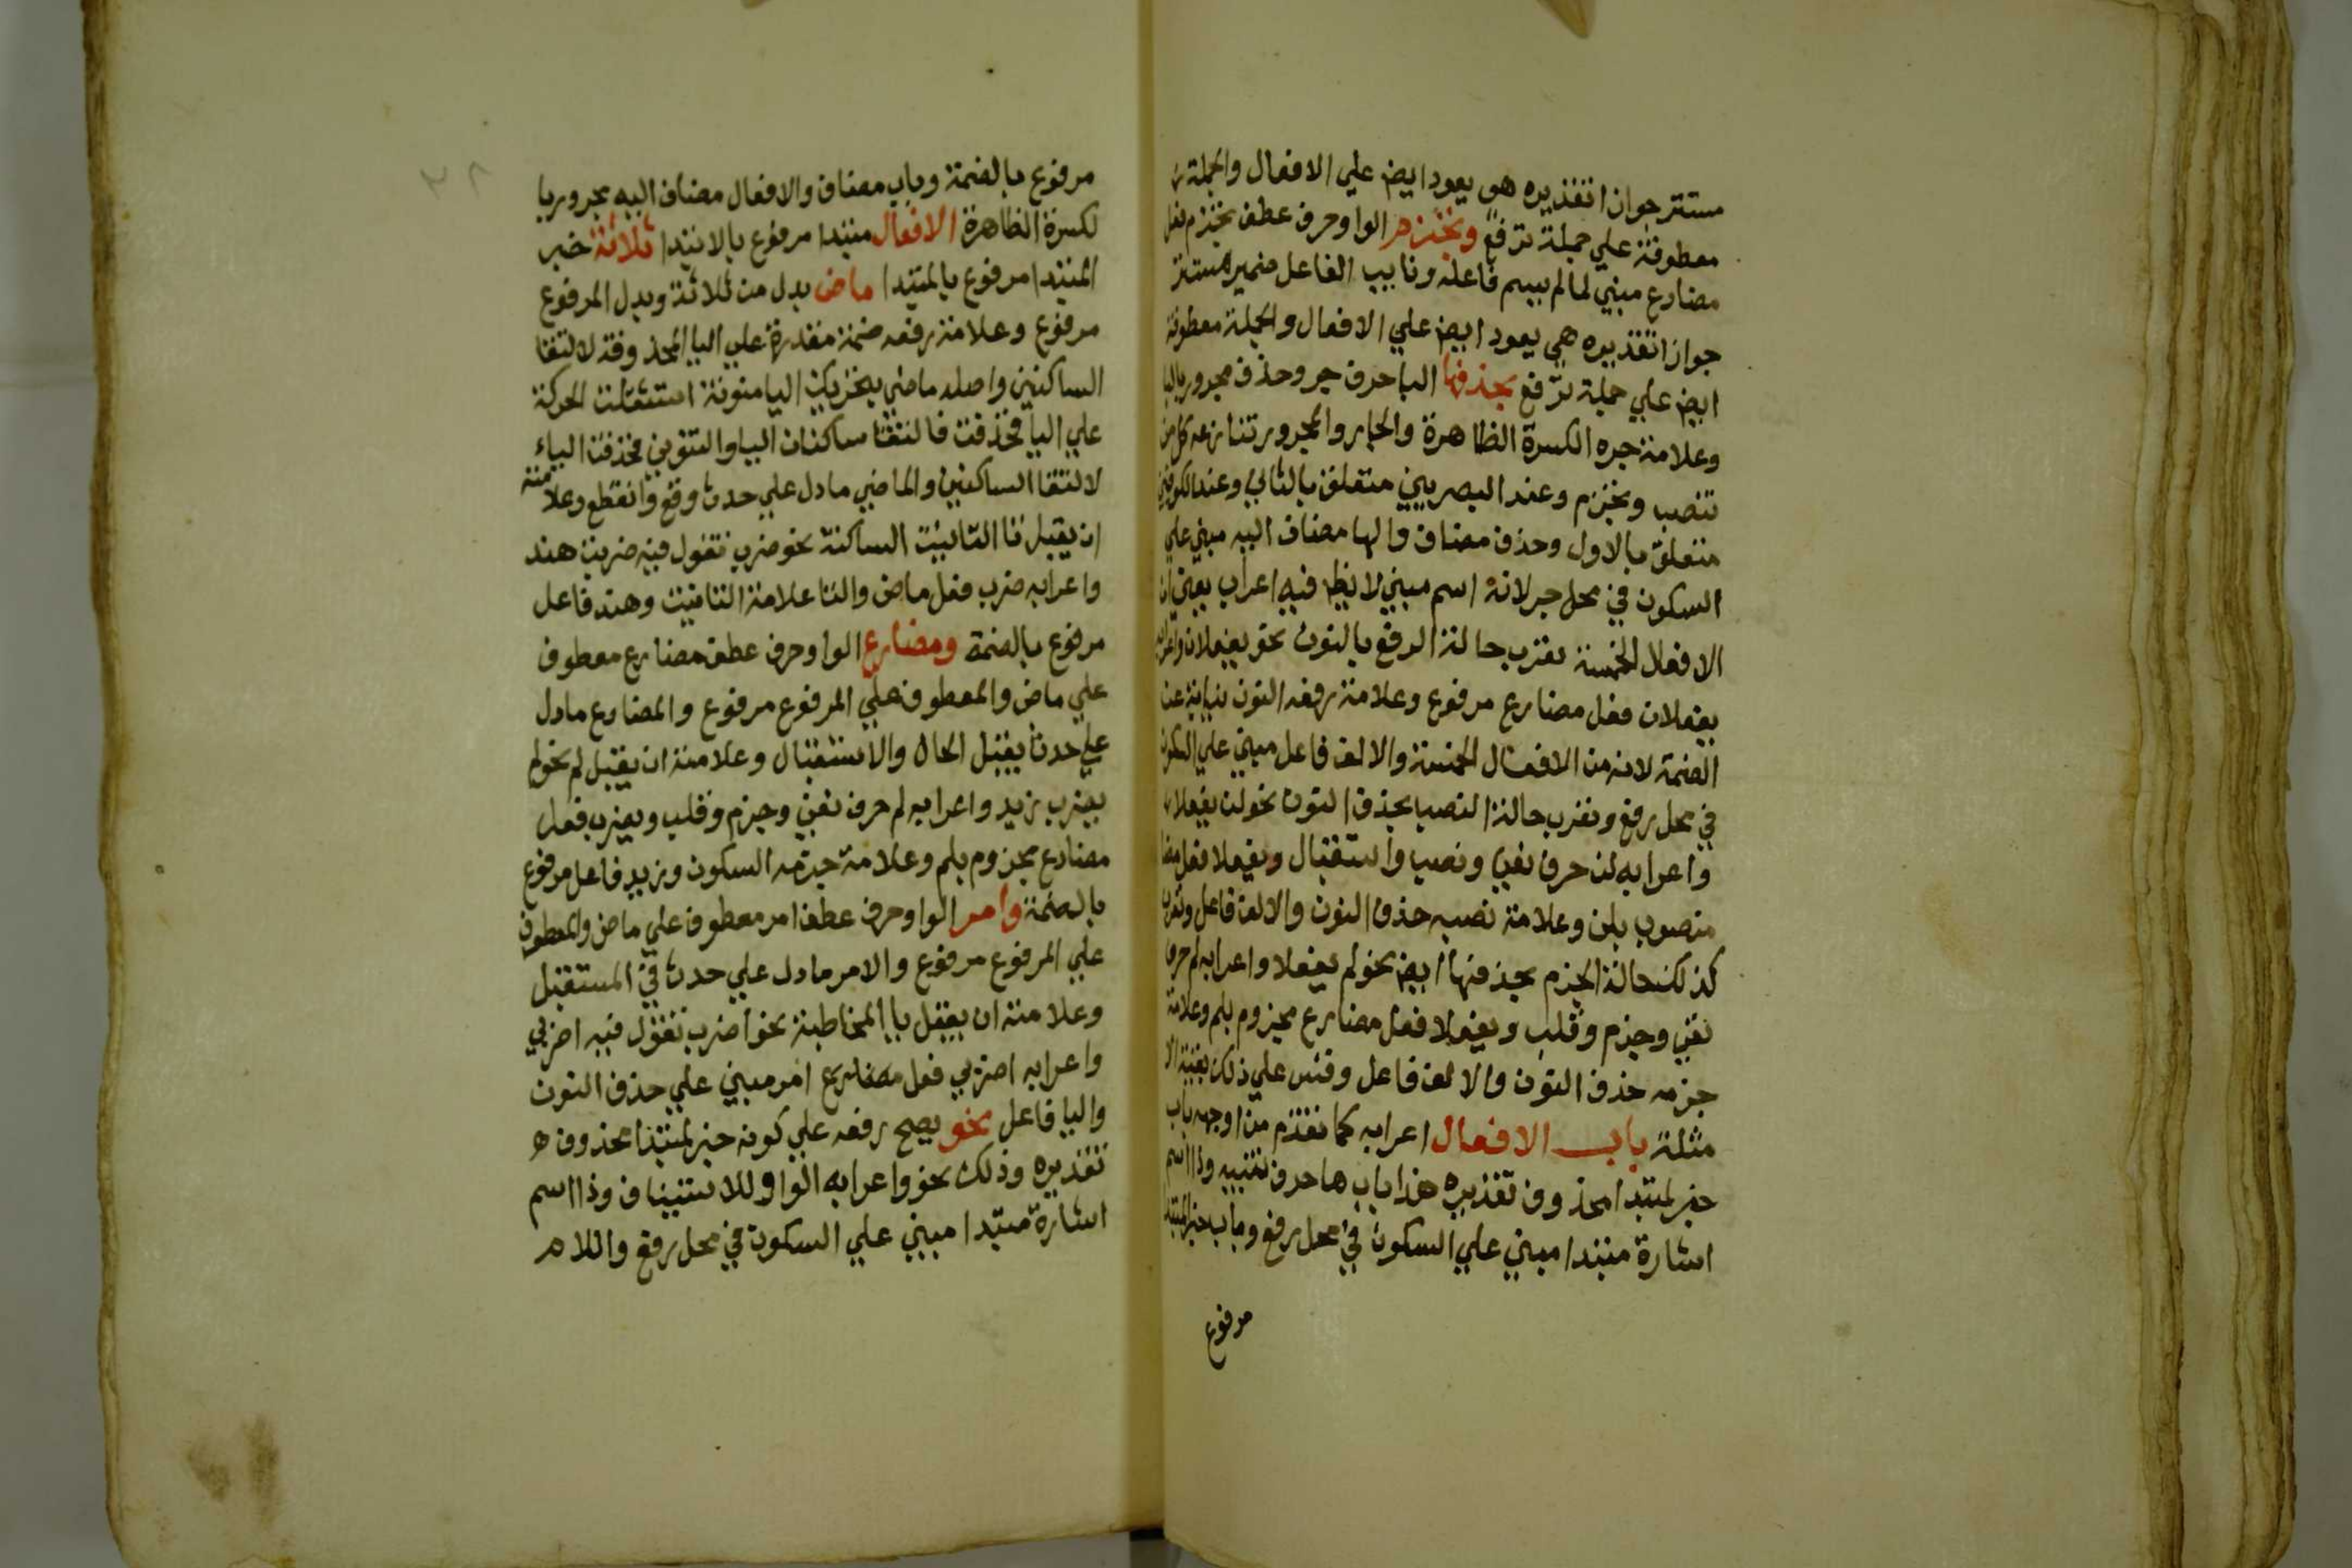 مستتر جوازا تقديره هو يعود ايض علي الافعال والجملة
معطوفة علي جملة ترفع وتجزم الواو حرف عطف تجزم فعل
مضارع مبني لما لم يسم فاعله ونايب الفاعل ضمير مستتر
جوازا تقديره هي يعود ايض علي الافعال والجملة معطوفة
ايض علي جملة ترفع بحذفها البا حرف جر وحذف مجرور بالبا
وعلامة جره الكسرة الظاهرة والجار والمجرور تنازعه كل من
تنصب وتجزم وعند البصريين متعلق بالثاني وعند الكوفيين
متعلق بالاول وحذف مضاف والها مضاف اليه مبني علي
السكون في محل جر لانه اسم مبني لا يظهر فيه اعراب يعني ان
الافعال الخمسة تعرب حالة الرفع بالنون نحو يفعلان واعرابه
يفعلان فعل مضارع مرفوع وعلامة رفعه النون نيابة عن
الضمة لانه من الافعال الخمسة والالف فاعل مبني علي السكون
في محل رفع وتعرب حالة النصب بحذف النون نحو لن يفعلا
واعرابه لن حرف نفي ونصب واستقبال ويفعلا فعل مضا
منصوب بلن وعلامة نصبه حذف النون والالف فاعل وتعرب
كذلك حالة الجزم بحذفها ايض نحو لم يفعلا واعرابه لم حرف
نفي وجزم وقلب ويفعلا فعل مضارع مجزوم بلم وعلامة
جزمه حذف النون والالف فاعل وقس علي ذلك بقية الا
مثلة باب الافعال اعرابه كما تقدم من اوجهه باب
خبر لمبتدا محذوف تقديره هذا باب ها حرف تنبيه وذا اسم
اشارة مبتدا مبني علي السكون في محل رفع وباب خبر المبتدا
مرفوع
مرفوع بالضمة وباب مضاف والافعال مضاف اليه مجرور با
لكسرة الظاهرة الافعال مبتدا مرفوع بالابتدا ثلاثة خبر
المبتدا مرفوع بالمبتدا ماض بدل من ثلاثة وبدل المرفوع
مرفوع وعلامة رفعه ضمة مقدرة علي اليا المحذوفة لالتقا
الساكنين واصله ماضي بتحريك اليا منونة استثقلت الحركة
علي اليا فحذفت فالتقا ساكنان اليا والتنوين فحذفت الياء
لالتقا الساكنين والماضي ما دل علي حدث وقع وانقطع وعلامته
ان يقبل تا التانيث الساكنة نحو ضرب تقول فيه ضربت هند
واعرابه ضرب فعل ماض والتا علامة التانيث وهند فاعل
مرفوع بالضمة ومضارع الواو حرف عطف مضارع معطوف
علي ماض والمعطوف علي المرفوع مرفوع والمضارع ما دل
علي حدث يقبل الحال والاستقبال وعلامته ان يقبل لم نحو لم
يضرب زيد واعرابه لم حرف نفي وجزم وقلب ويضرب فعل
مضارع مجزوم بلم وعلامة جزمه السكون وزيد فاعل مرفوع
بالضمة وامر الواو حرف عطف امر معطوف علي ماض والمعطوف
علي المرفوع مرفوع والامر ما دل علي حدث في المستقبل
وعلامته ان يقبل يا المخاطبة نحو اضرب تقول فيه اضربي
واعرابه اضربي فعل مضارع امر مبني علي حذف النون
واليا فاعل نحو يصح رفعه علي كونه خبر لمبتدا محذوف
تقديره وذلك نحو واعرابه الواو للاستيناف وذا اسم
اشارة مبتدا مبني علي السكون في محل رفع واللام